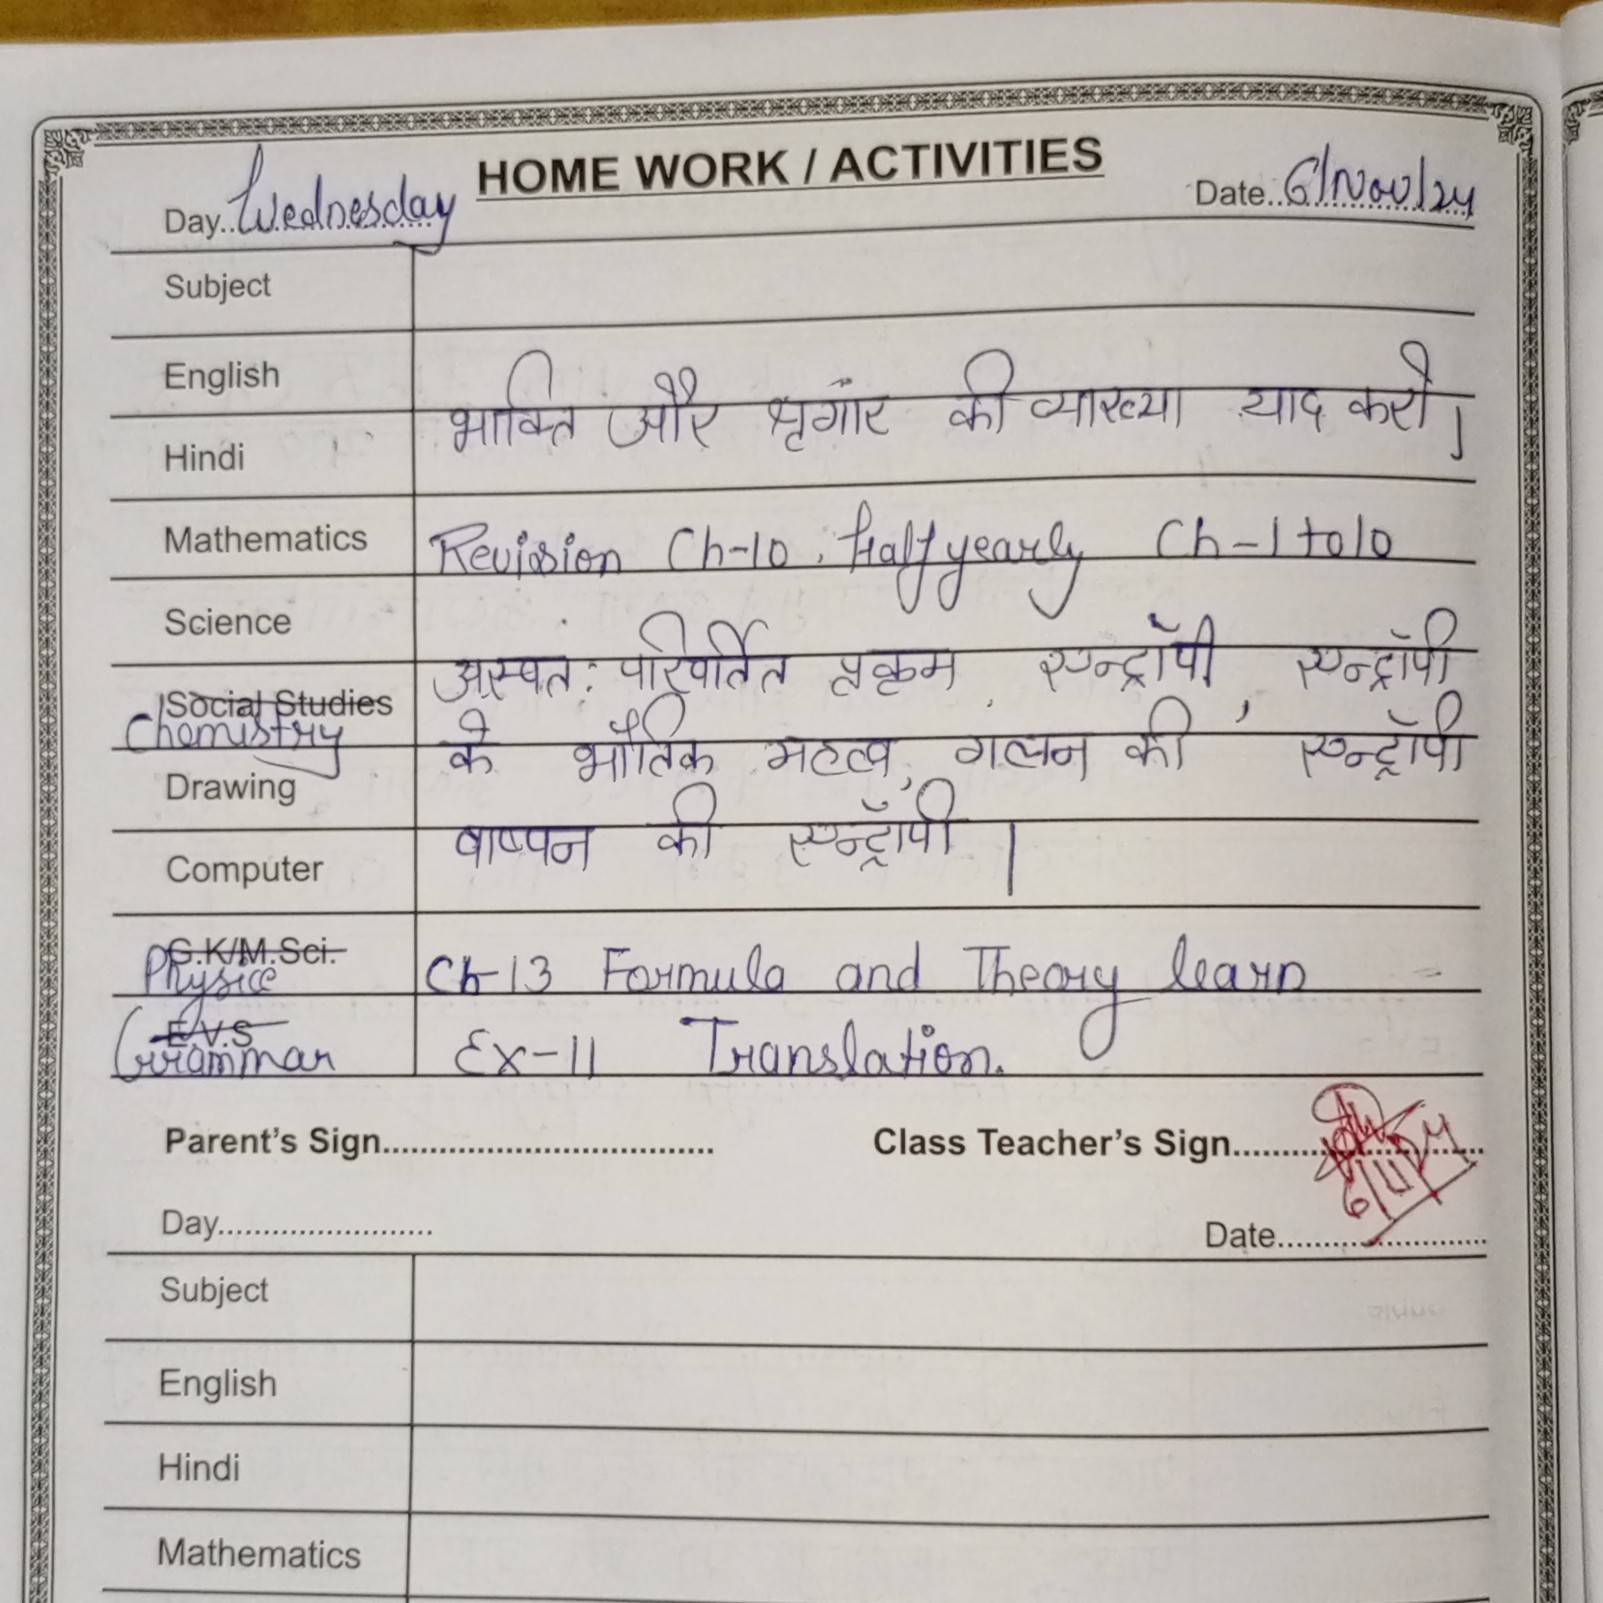 HOME WORK / ACTIVITIES
Day..Wednesday Date..6/Nov/24
Subject
English
Hindi भाक्ति और श्रृगांर की व्याख्या याद करो।
Mathematics Revision Ch-10, Half yearly Ch-1 to 10
Science
Social Studies अस्वतः परिवर्तित प्रक्रम, एन्ट्रॉपी, एन्ट्रॉपी
Chemistry के भौतिक महत्व, गलन की एन्ट्रॉपी
Drawing
वाष्पन की एन्ट्रॉपी।
Computer
G.K/M.Sci.
Physics Ch-13 Formula and Theory learn
E.V.S
Grammar Ex-11 Translation.
Parent's Sign................................. Class Teacher's Sign..........
6/11/24
Day...................... Date......................
Subject
English
Hindi
Mathematics